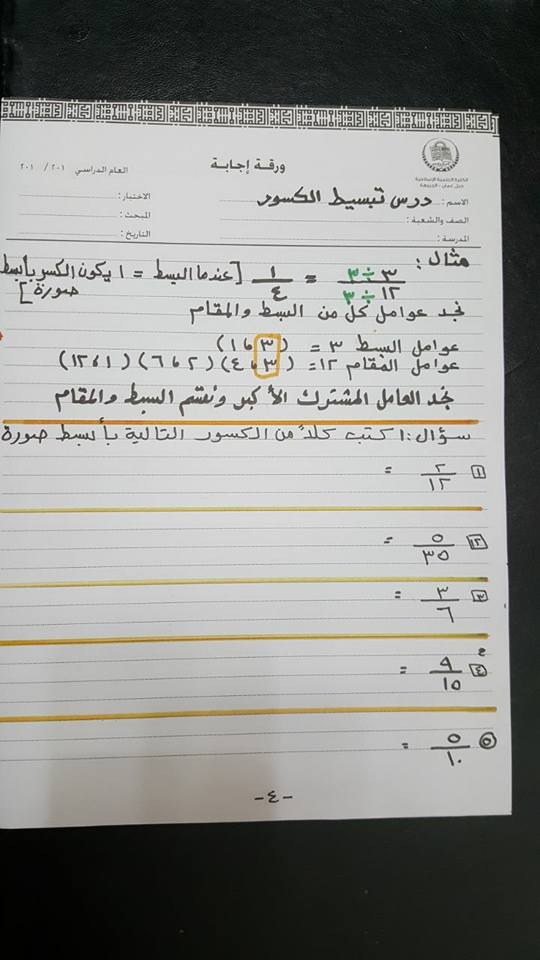 الكلية العلمية الإسلامية
جبل عمان - الجبيهة
ورقة إجابة
العام الدراسي ٢٠١ / ٢٠١
الاسم: درس تبسيط الكسور
الاختبار:
الصف والشعبة:
المبحث:
المدرسة:
التاريخ:
مثال:
٣ ÷ ٣ / ١٢ ÷ ٣ = ١ / ٤ [عندما البسط = ١ يكون الكسر بأبسط
صورة]
نجد عوامل كل من البسط والمقام
عوامل البسط ٣ = (٣، ١)
عوامل المقام ١٢ = (٣، ٤) (٢، ٦) (١، ١٢)
نجد العامل المشترك الأكبر ونقسم البسط والمقام
سؤال: اكتب كلاً من الكسور التالية بأبسط صورة
١ ٢ / ١٢ =
٢ ٥ / ٣٥ =
٣ ٣ / ٦ =
٤ ٩ / ١٥ =
٥ ٥ / ١٠ =
-٤-